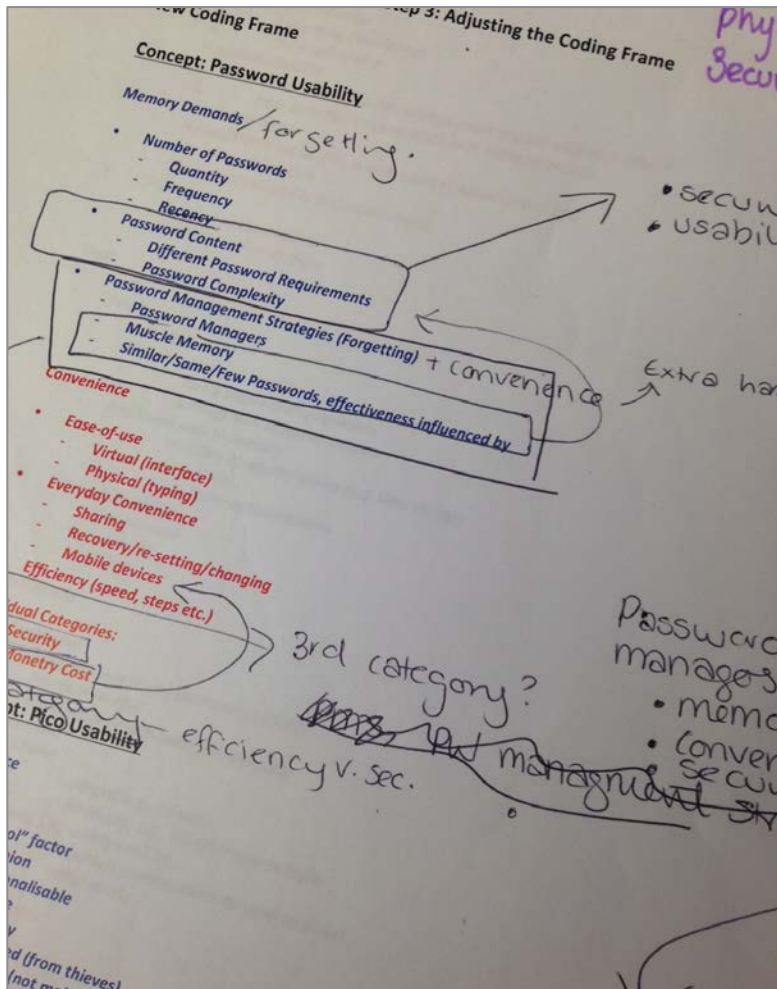 Coding Frame
3: Adjusting the Coding Frame
Concept: Password Usability
Memory Demands / forgetting.
• Number of Passwords
- Quantity
- Frequency
- Recency
• Password Content
- Different Password Requirements
- Password Complexity
• Password Management Strategies (Forgetting) + convenience
- Password Managers
- Muscle Memory
- Similar/Same/Few Passwords, effectiveness influenced by
Extra
Convenience
• Ease-of-use
- Virtual (interface)
- Physical (typing)
• Everyday Convenience
- Sharing
- Recovery/re-setting/changing
- Mobile devices
Efficiency (speed, steps etc.)
Categories:
Security
Monetry Cost
3rd category?
category - efficiency v. sec.
PW managment
Pico Usability
factor
(from thieves)
(not